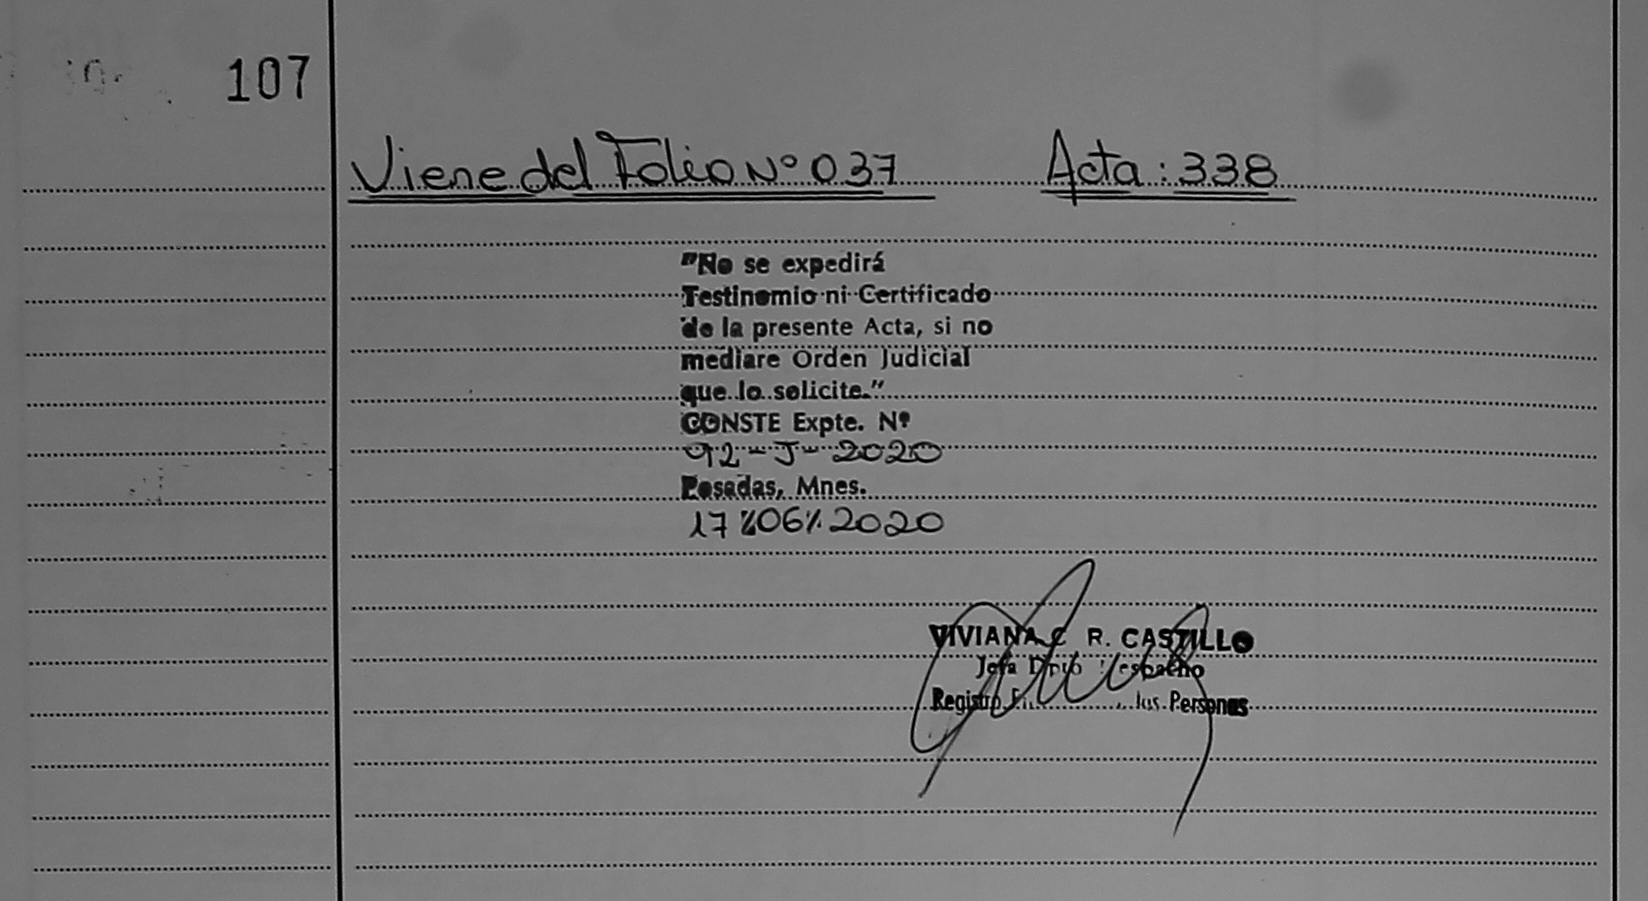 107
Viene del Folio Nº 037 Acta: 338
"No se expedirá
Testinomio ni Certificado
de la presente Acta, si no
mediare Orden Judicial
que lo solicite."
CONSTE Expte. Nº
92-J-2020
Posadas, Mnes.
17%06%2020
VIVIANA C R. CASTILLO
Jefa Dpto Despacho
Registro las Personas